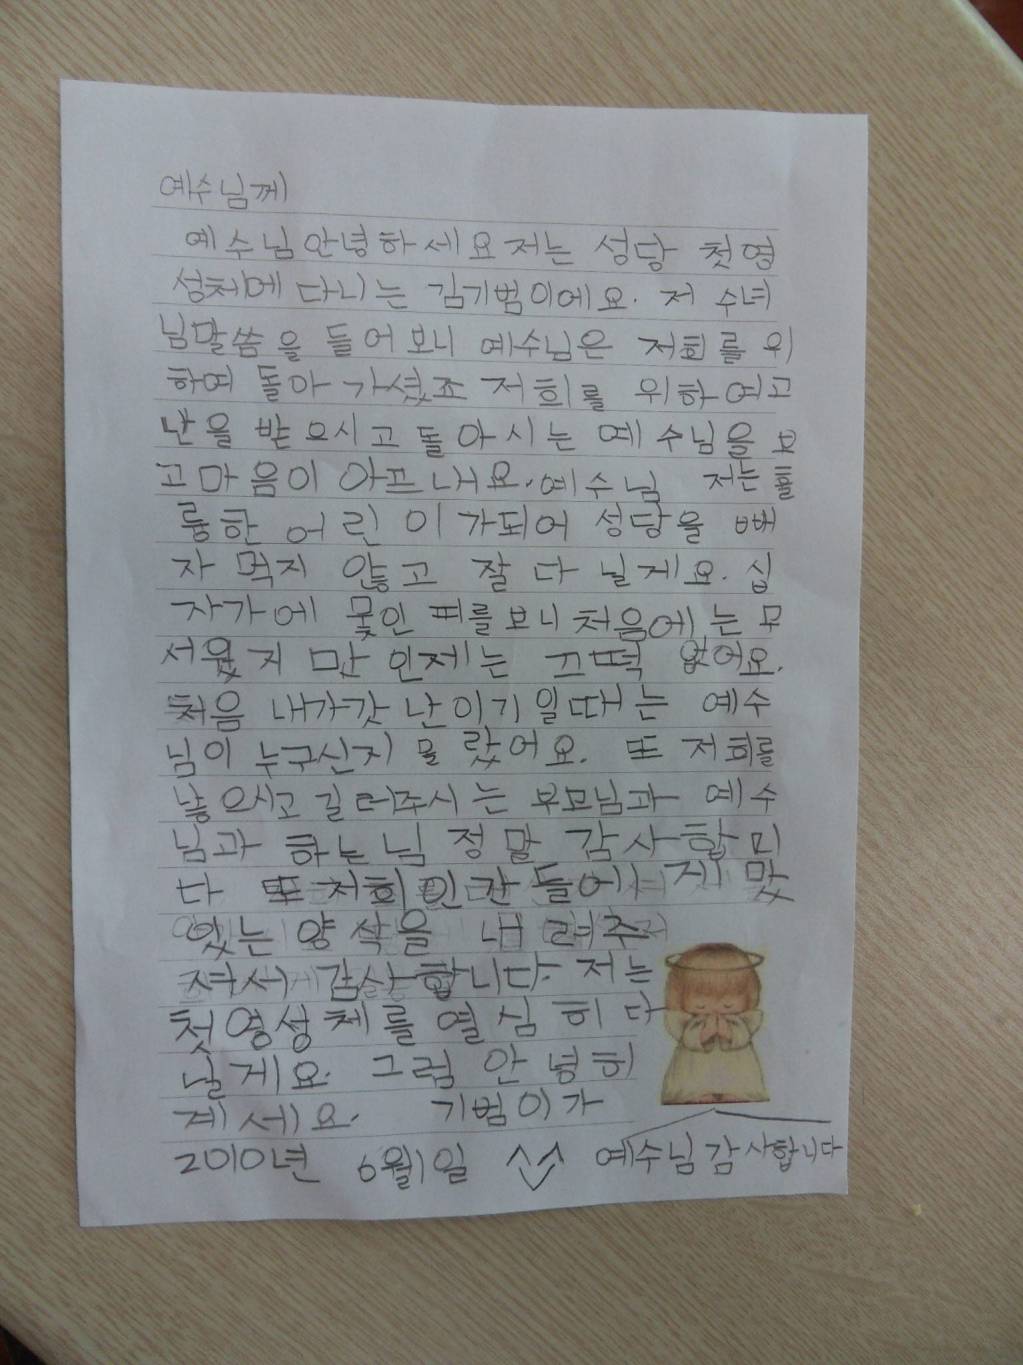 예수님께
예수님안녕하세요저는 성당 첫영
성체에 다니는 김기범이에요. 저 수녀
님말씀을 들어보니 예수님은 저희를 위
하여 돌아 가셨죠 저희를 위하여고
난을 받으시고돌아시는 예수님을 보
고마음이 아프내요. 예수님 저는훌
륭한 어린이가되어 성당을 빼
자 먹지 않고 잘 다닐게요. 십
자가에 뭋인 피를보니 처음에는 무
서웠지만 인제는 끄떡 없어요.
처음 내가갓난이기일때는 예수
님이 누구신지 몰랐어요. 또 저희를
낳으시고 길러주시는 부모님과 예수
님과 하느님 정말 감사합니
다 또 저희 인간들에게 맛
있는 양식을 내려주
셔서 감사합니다. 저는
첫영성체를 열심히 다
닐게요. 그럼 안녕히
계세요. 기범이가
2010년 6월1일
예수님감사합니다